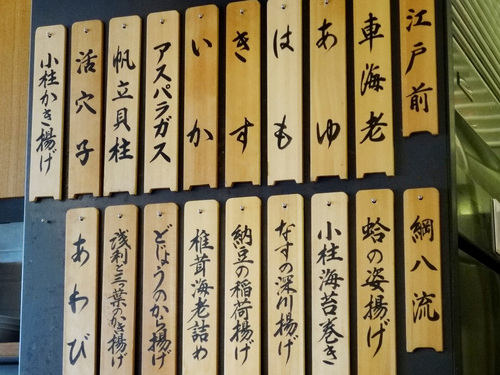 江戸前
車海老
あゆ
はも
きす
いか
アスパラガス
帆立貝柱
活穴子
小柱かき揚げ
綱八流
蛤の姿揚げ
小柱海苔巻き
なすの深川揚げ
納豆の稲荷揚げ
椎茸海老詰め
どじょうのから揚げ
浅利と三つ葉のかき揚げ
あわび